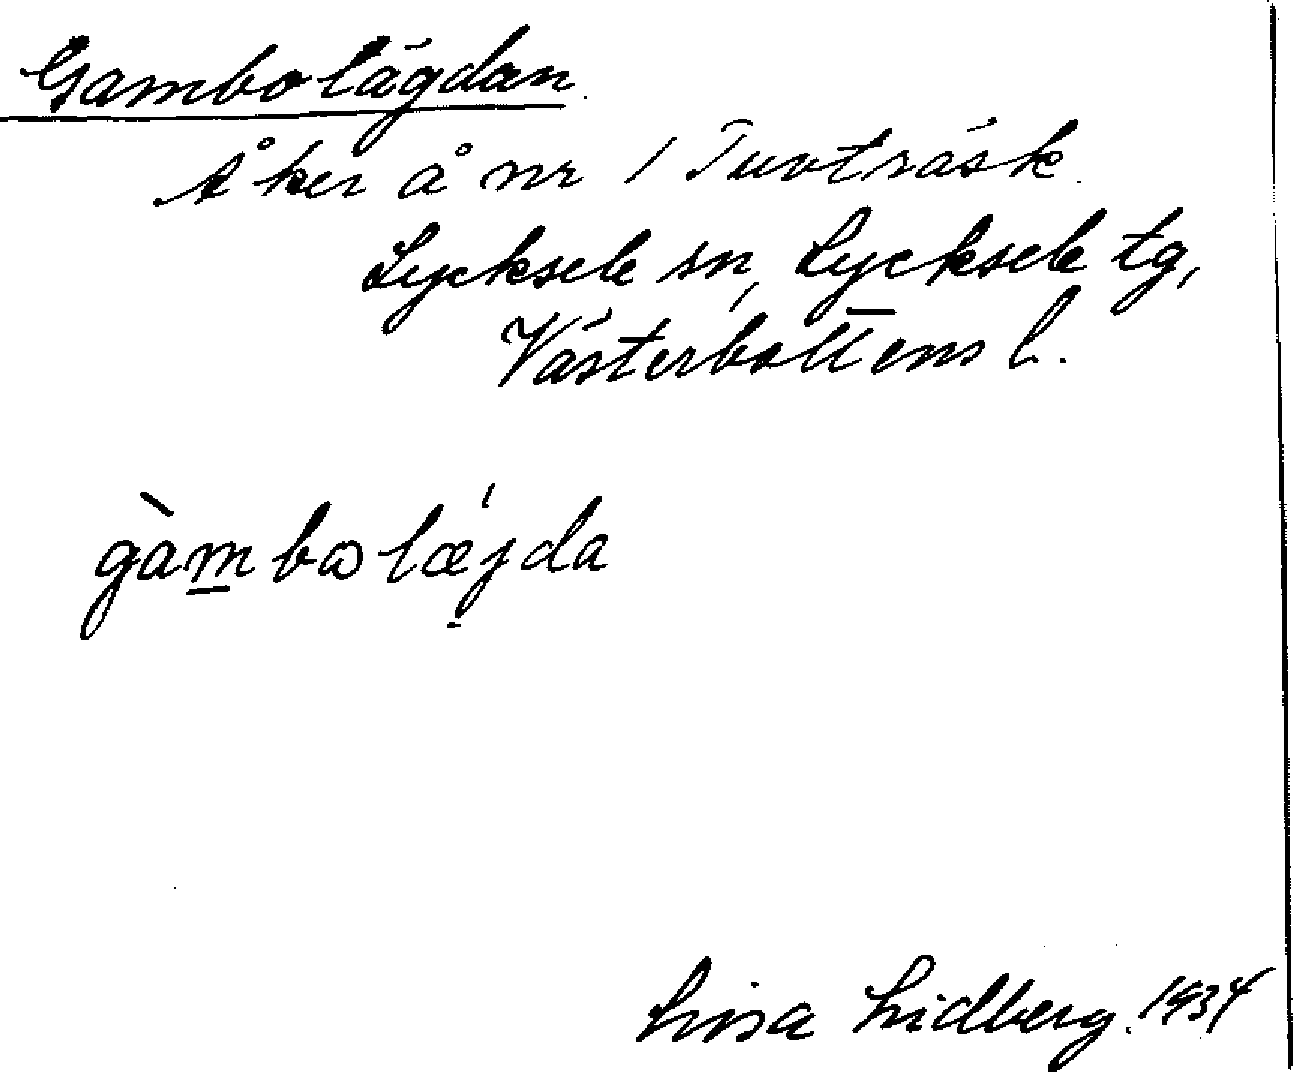 Gambolägdan.
Åker å nr 1 Tuvträsk.
Lycksele sn, Lycksele tg,
Västerbottens l.
gàm̲bωlǽ̣jda
Lisa Lidberg. 1934